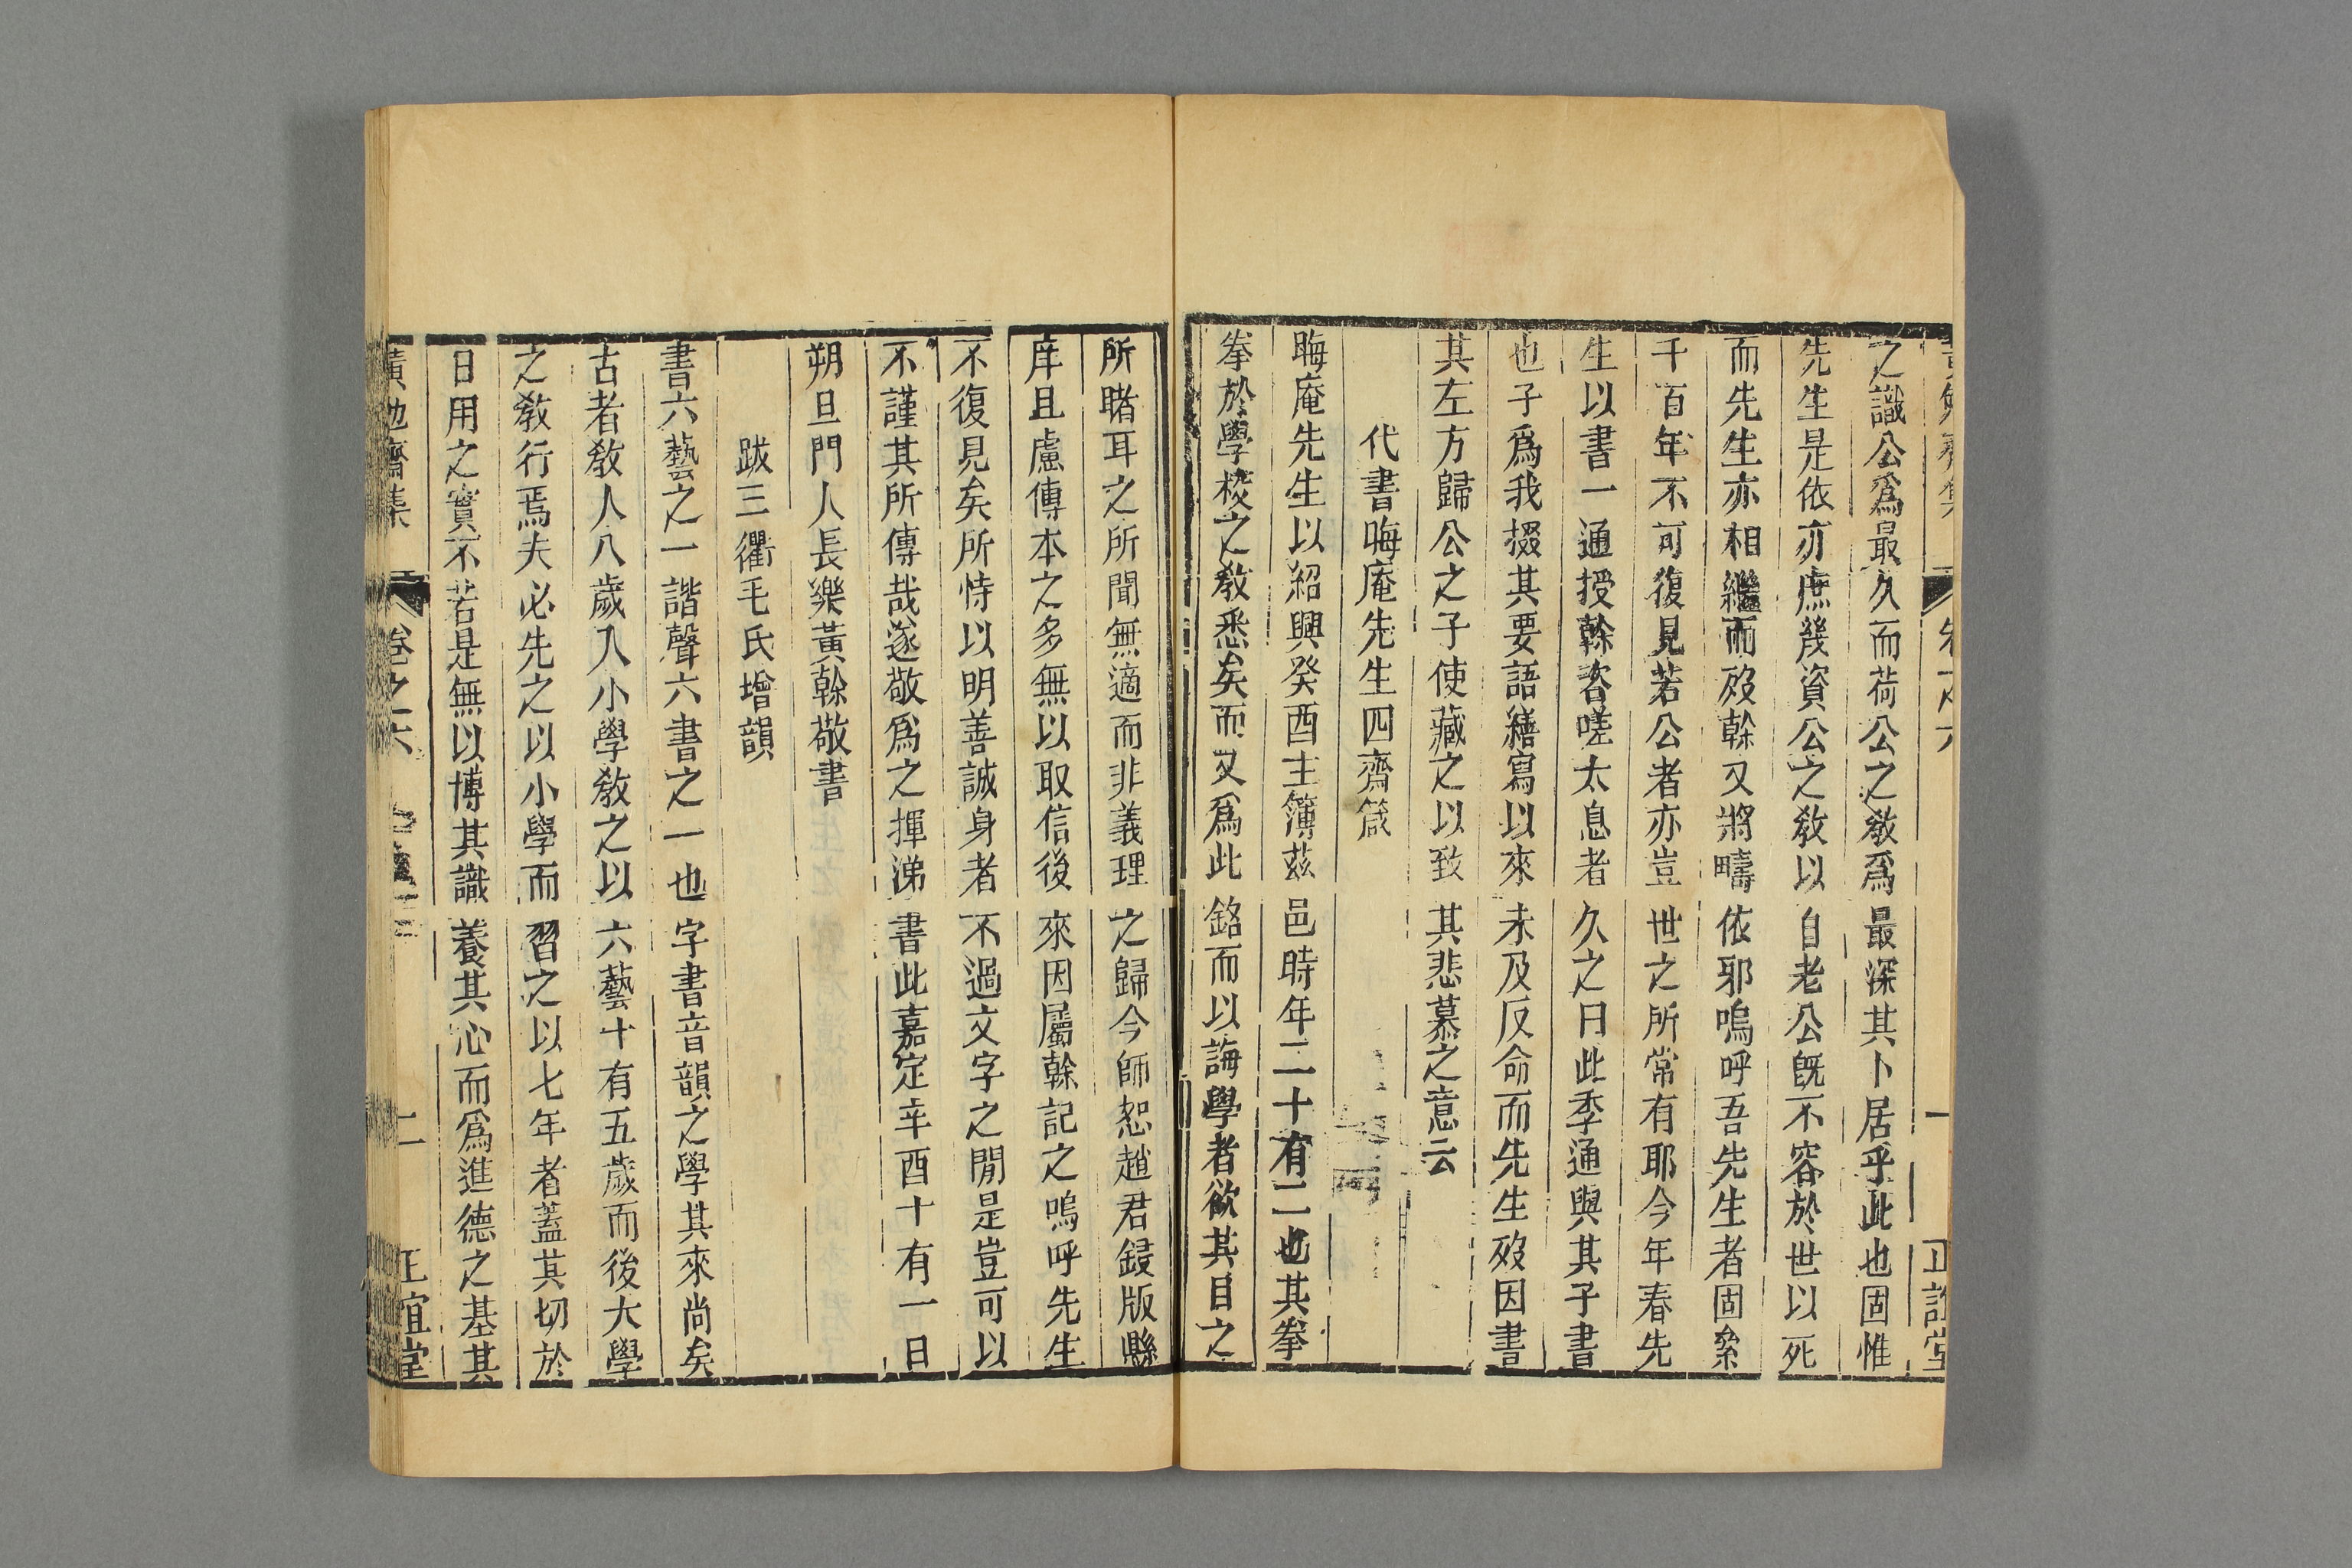 之識公爲最久而荷公之敎爲最深其卜居乎此也固惟
先生是依亦庶幾資公之敎以自老公旣不容於世以死
而先生亦相繼而歿榦又將疇依邪嗚呼吾先生者固絫
千百年不可復見若公者亦豈世之所常有耶今年春先
生以書一通授榦咨嗟太息者久之曰此季通與其子書
也子爲我掇其要語繕寫以來未及反命而先生歿因書
其左方歸公之子使藏之以致其悲慕之意云
代書晦庵先生四齋箴
晦庵先生以紹興癸酉主簿茲邑時年二十有二也其拳
拳於學校之敎悉矣而又爲此銘而以誨學者欲其目之
所睹耳之所聞無適而非義理之歸今師恕趙君鋟版縣
庠且慮傳本之多無以取信後來因屬榦記之嗚呼先生
不復見矣所恃以明善誠身者不過文字之閒是豈可以
不謹其所傳哉遂敬爲之揮涕書此嘉定辛酉十有一日
朔旦門人長樂黃榦敬書
跋三衢毛氏增韻
書六藝之一諧聲六書之一也字書音韻之學其來尚矣
古者敎人八歲入小學敎之以六藝十有五歲而後大學
之敎行焉夫必先之以小學而習之以七年者蓋其切於
日用之實不若是無以博其識養其心而爲進德之基其
黃勉齋集 卷之六 二 正誼堂